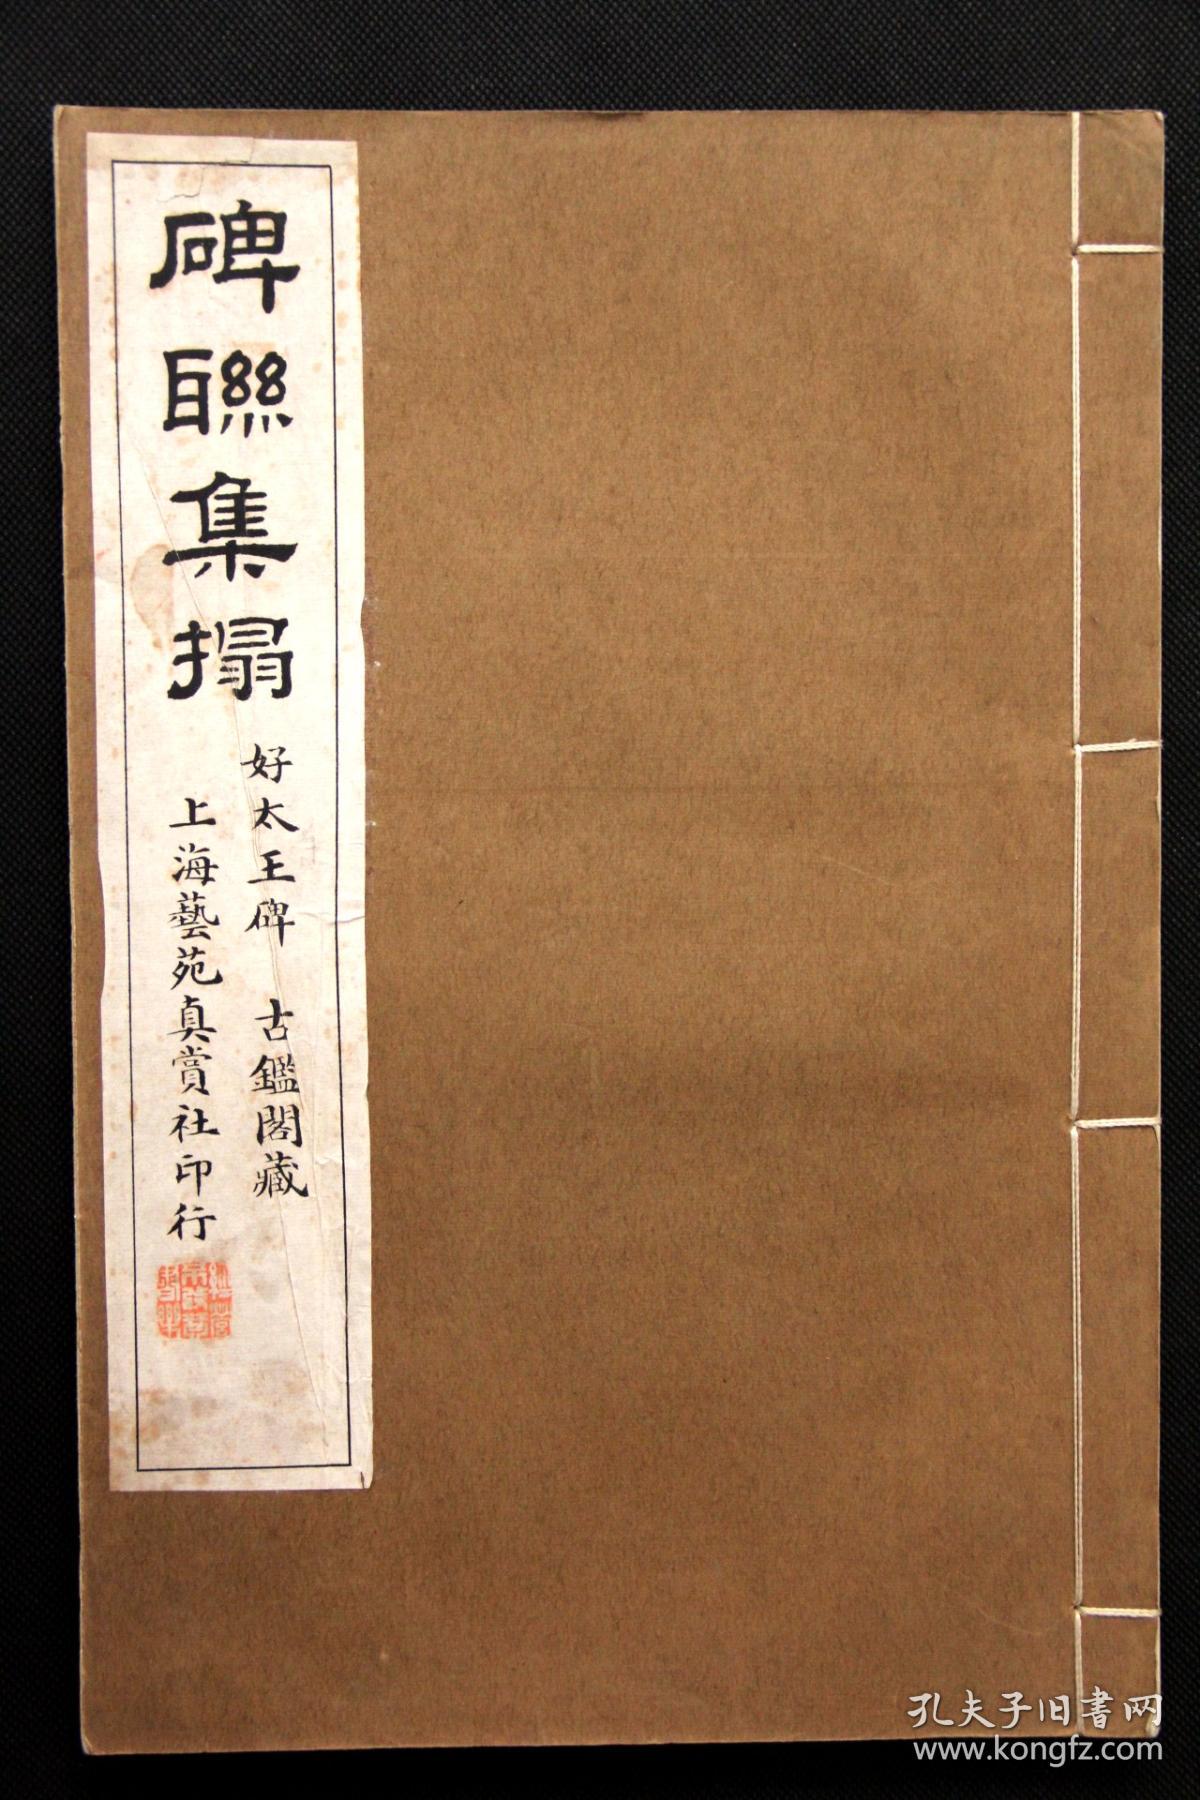 碑聯集搨
好太王碑 古鑑閣藏
上海藝苑真賞社印行
孔夫子旧書网
www.kongfz.com